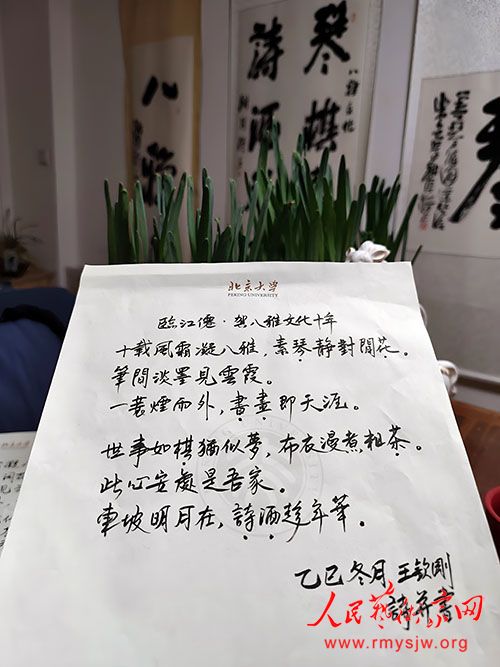 八雅
琴棋
詩酒
北京大学
PEKING UNIVERSITY
臨江僊·賀八雅文化十年
十載風霜凝八雅，素琴靜對閒花。
筆間淡墨見雲霞。
一蓑煙雨外，書畫即天涯。
世事如棋猶似夢，布衣漫煮粗茶。
此心安處是吾家。
東坡明月在，詩酒趁年華。
乙巳冬月王欽剛
詩并書
人民藝術家网
www.rmysjw.org